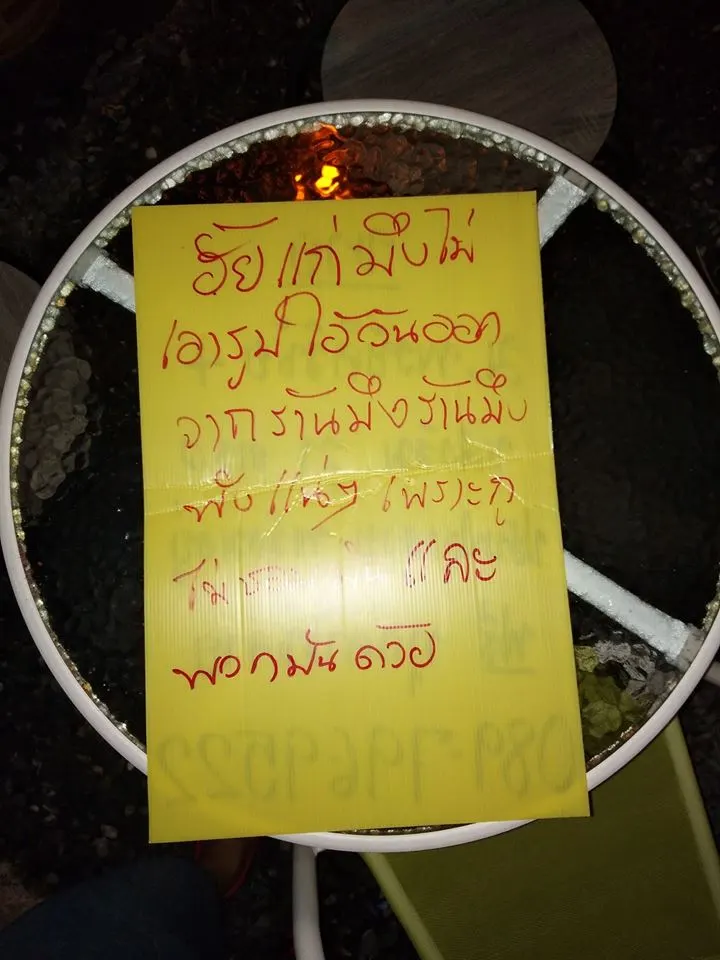 อั้ยแก่ มึงไม่
เอารูปไอ้อ้วนออก
จากร้านมึงร้านมึง
พังแน่ๆ เพราะกู
ไม่ชอบมันและ
พวกมันด้วย